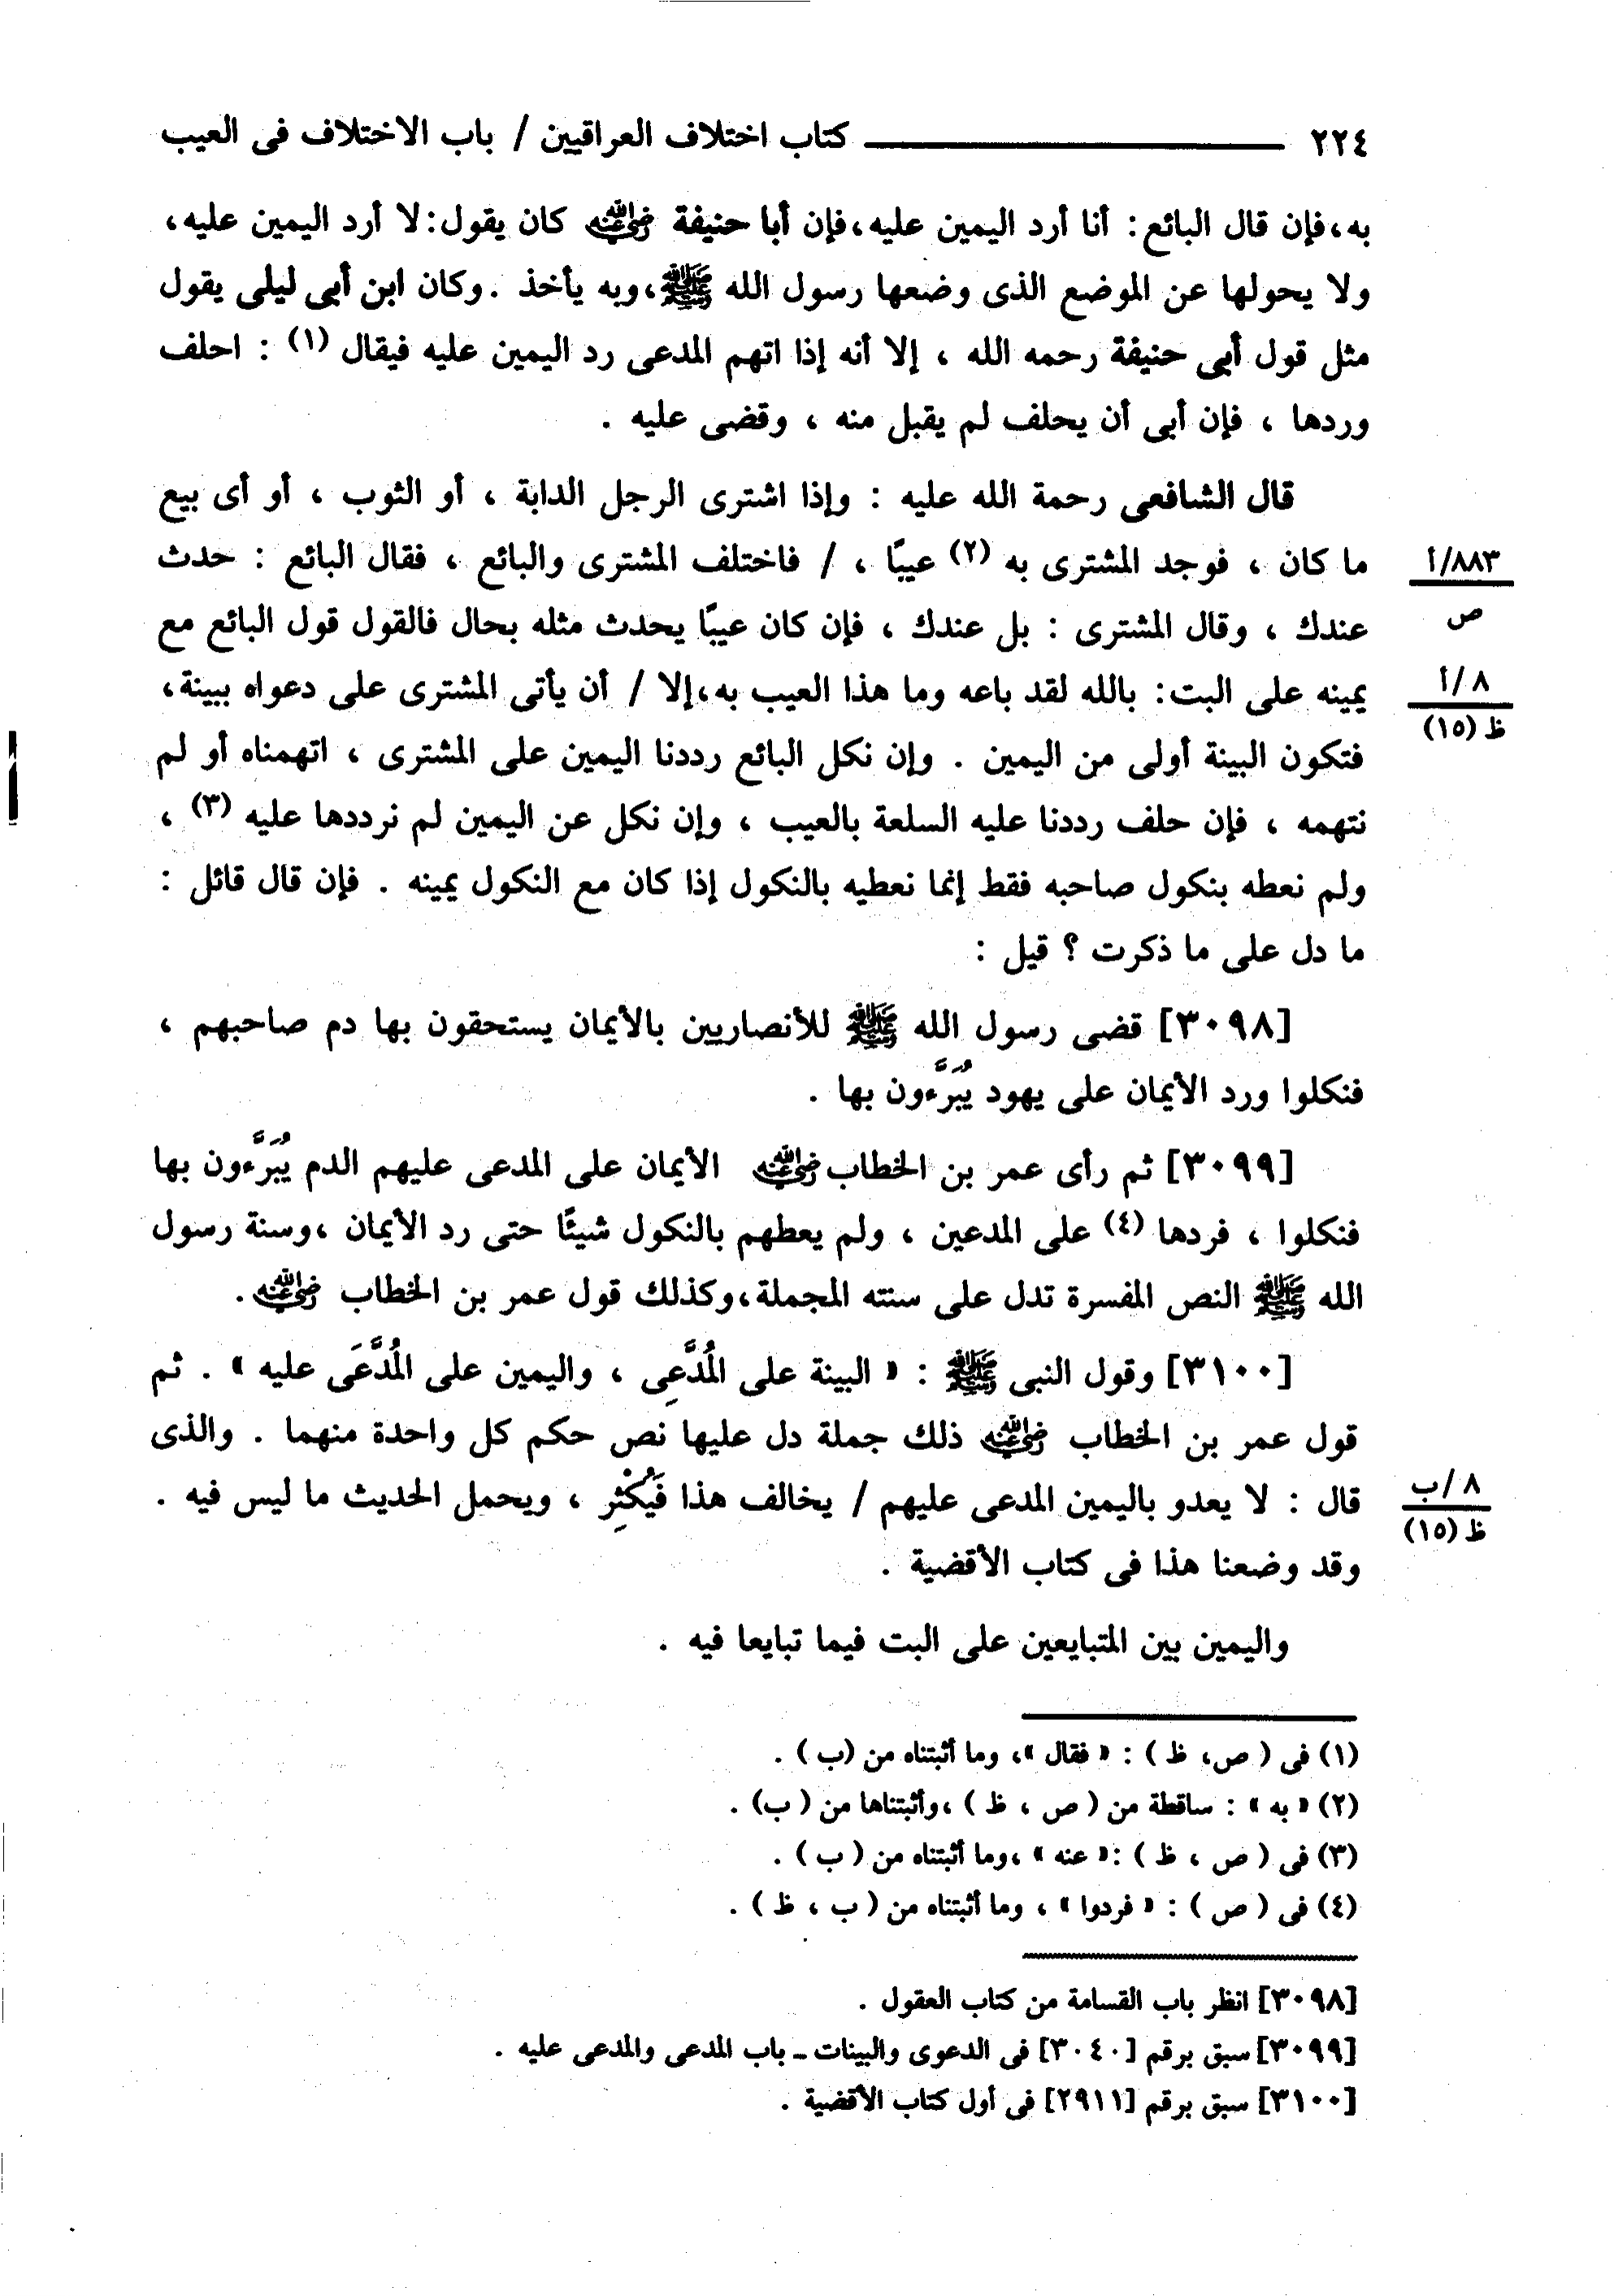 ٢٢٤ كتاب اختلاف العراقيين / باب الاختلاف فى العيب
به، فإن قال البائع: أنا أرد اليمين عليه، فإن أبا حنيفة رضي الله عنه كان يقول: لا أرد اليمين عليه،
ولا يحولها عن الموضع الذى وضعها رسول الله ﷺ، وبه يأخذ . وكان ابن أبى ليلى يقول
مثل قول أبى حنيفة رحمه الله ، إلا أنه إذا اتهم المدعى رد اليمين عليه فيقال (١) : احلف
وردها ، فإن أبى أن يحلف لم يقبل منه ، وقضى عليه .
قال الشافعى رحمة الله عليه : وإذا اشترى الرجل الدابة ، أو الثوب ، أو أى بيع
ما كان ، فوجد المشترى به (٢) عيبًا ، / فاختلف المشترى والبائع ، فقال البائع : حدث
٨٨٣/أ
ص
عندك ، وقال المشترى : بل عندك ، فإن كان عيبًا يحدث مثله بحال فالقول قول البائع مع
يمينه على البت: بالله لقد باعه وما هذا العيب به، إلا / أن يأتى المشترى على دعواه ببينة،
٨/أ
ظ (١٥)
فتكون البينة أولى من اليمين . وإن نكل البائع رددنا اليمين على المشترى ، اتهمناه أو لم
نتهمه ، فإن حلف رددنا عليه السلعة بالعيب ، وإن نكل عن اليمين لم نرددها عليه (٣) ،
ولم نعطه بنكول صاحبه فقط إنما نعطيه بالنكول إذا كان مع النكول يمينه . فإن قال قائل :
ما دل على ما ذكرت ؟ قيل :
[٣٠٩٨] قضى رسول الله ﷺ للأنصاريين بالأيمان يستحقون بها دم صاحبهم ،
فنكلوا ورد الأيمان على يهود يُبَرَّءون بها .
[٣٠٩٩] ثم رأى عمر بن الخطاب رضي الله عنه الأيمان على المدعى عليهم الدم يُبَرَّءون بها
فنكلوا ، فردها (٤) على المدعين ، ولم يعطهم بالنكول شيئًا حتى رد الأيمان ، وسنة رسول
الله ﷺ النص المفسرة تدل على سنته المجملة، وكذلك قول عمر بن الخطاب رضي الله عنه .
[٣١٠٠] وقول النبى ﷺ : « البينة على المُدَّعِى ، واليمين على المُدَّعَى عليه » . ثم
قول عمر بن الخطاب رضي الله عنه ذلك جملة دل عليها نص حكم كل واحدة منهما . والذى
قال : لا يعدو باليمين المدعى عليهم / يخالف هذا فَيُكْثِر ، ويحمل الحديث ما ليس فيه .
٨/ب
ظ (١٥)
وقد وضعنا هذا فى كتاب الأقضية .
واليمين بين المتبايعين على البت فيما تبايعا فيه .
(١) فى ( ص، ظ ) : « فقال »، وما أثبتناه من (ب) .
(٢) « به » : ساقطة من ( ص ، ظ ) ، وأثبتناها من ( ب) .
(٣) فى ( ص ، ظ ) : « عنه » ، وما أثبتناه من ( ب ) .
(٤) فى ( ص ) : « فردوا » ، وما أثبتناه من ( ب ، ظ ) .
[٣٠٩٨] انظر باب القسامة من كتاب العقول .
[٣٠٩٩] سبق برقم [٣٠٤٠] فى الدعوى والبينات ـ باب المدعى والمدعى عليه .
[٣١٠٠] سبق برقم [٢٩١١] فى أول كتاب الأقضية .